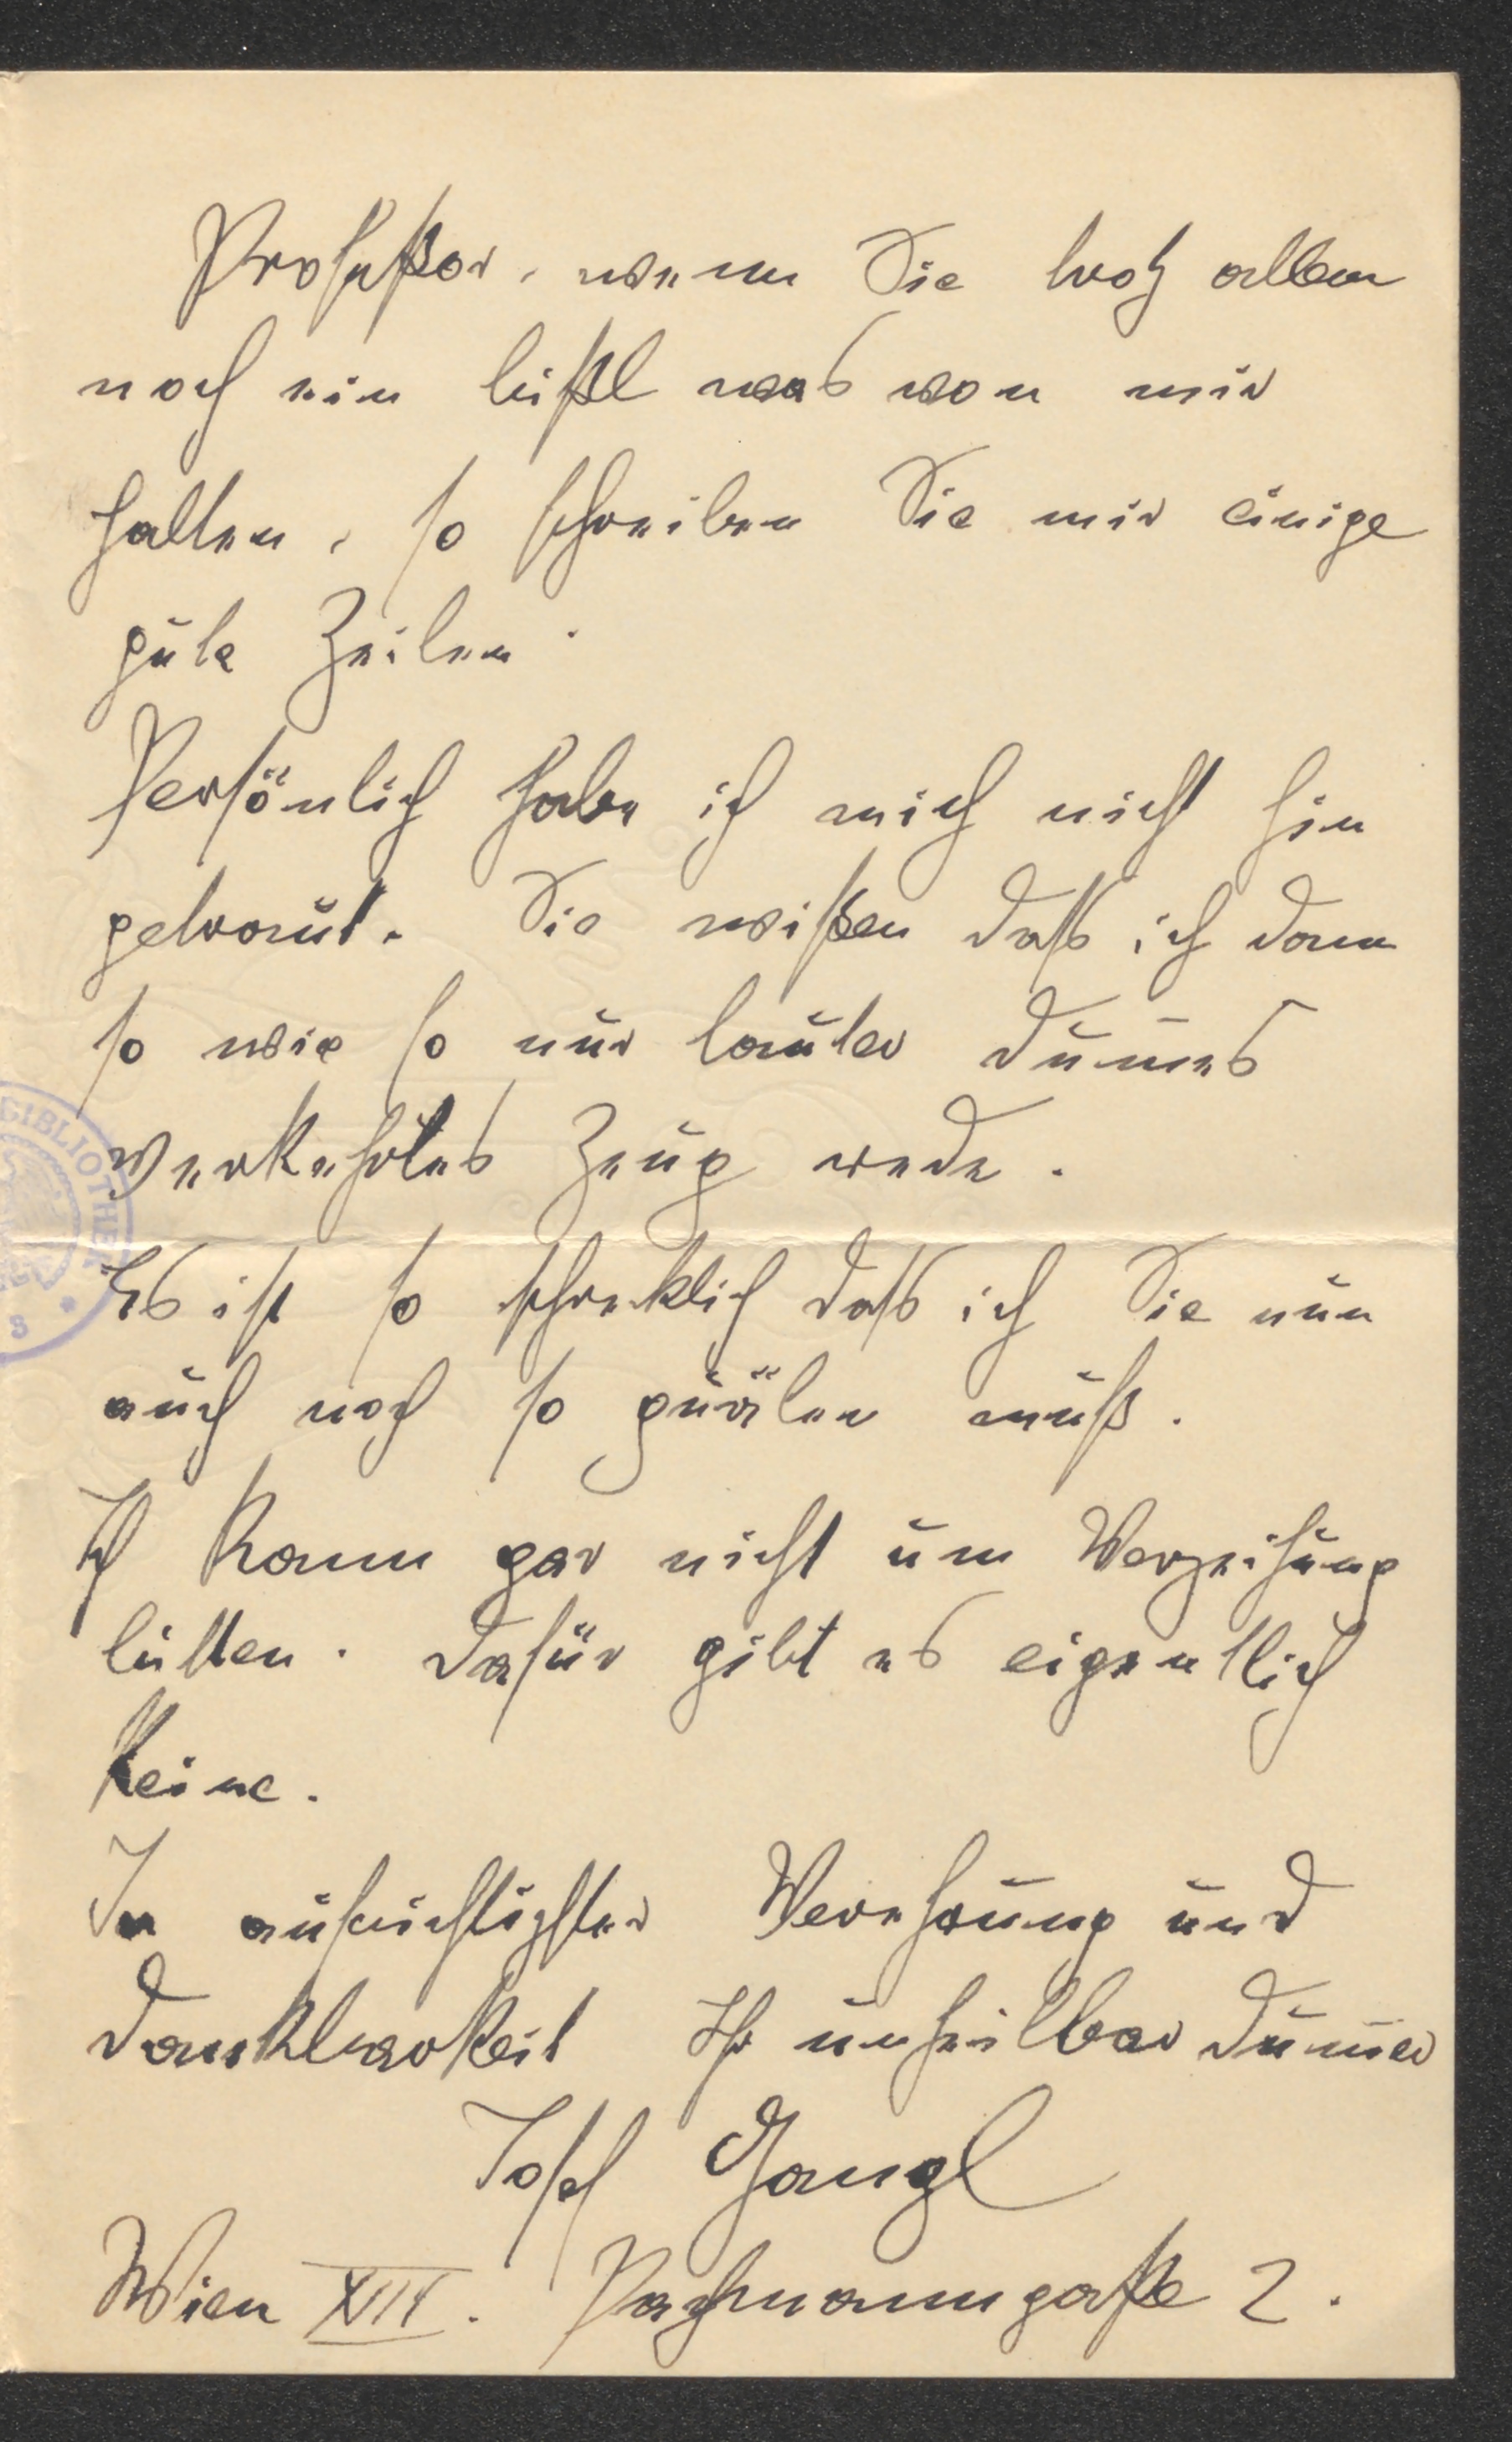 Profeßor, wenn Sie trotz allem
noch ein bißl was von mir
halten, so schreiben Sie mir einige
gute Zeilen.
Persönlich habe ich mich nicht hin
getraut. Sie wißen daß ich dann
so wie so nur lauter dum̄es
verkehrtes Zeug rede.
Es ist so schreklich daß ich Sie nun
auch noch so quälen muß.
Ich kann gar nicht um Verzeihung
bitten. Dafür gibt es eigentlich
keine.
In aufrichtigster Verehrung und
Dankbarkeit Ihr unheilbar dum̄er
Josef Gangl
Wien XIII. Pachmanngaße 2.
BIBLIOTHEK